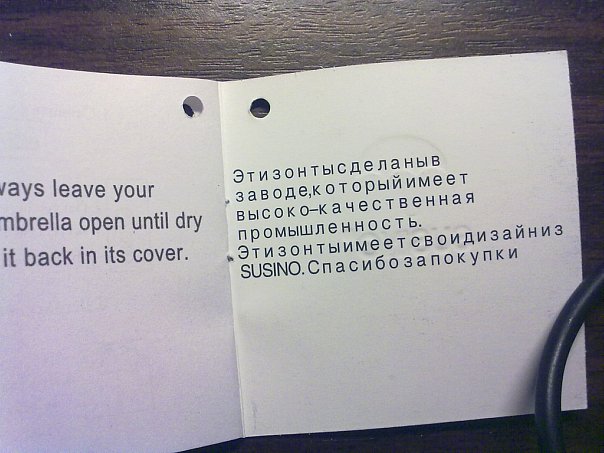 ways leave your
mbrella open until dry
it back in its cover.
Этизонтысделаныв
заводе,которыйимеет
высоко–качественная
промышленность.
Этизонтыимеетсвоидизайниз
SUSINO.Спасибозапокупки